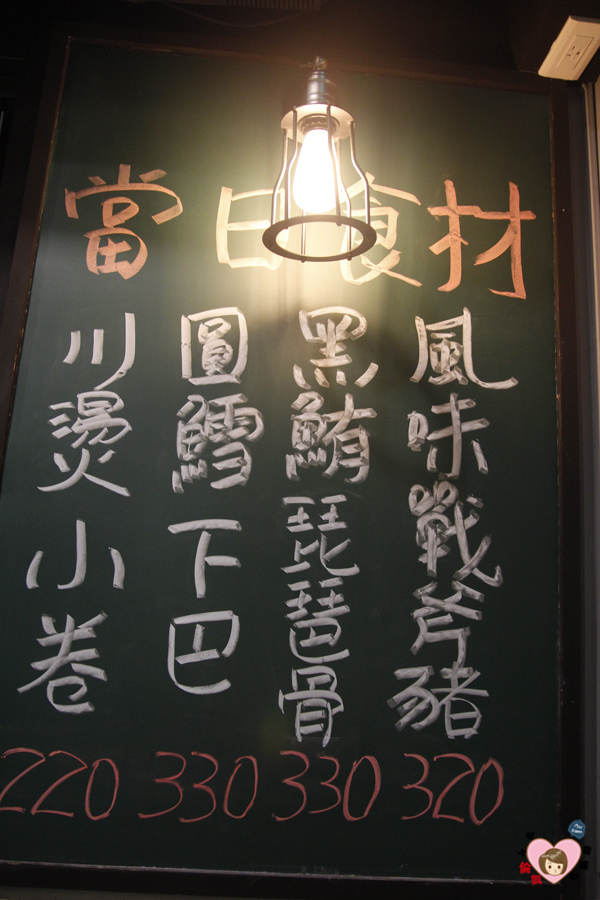 當日食材
風味戰斧豬 320
黑鮪琵琶骨 330
圓鱈下巴 330
川燙小卷 220